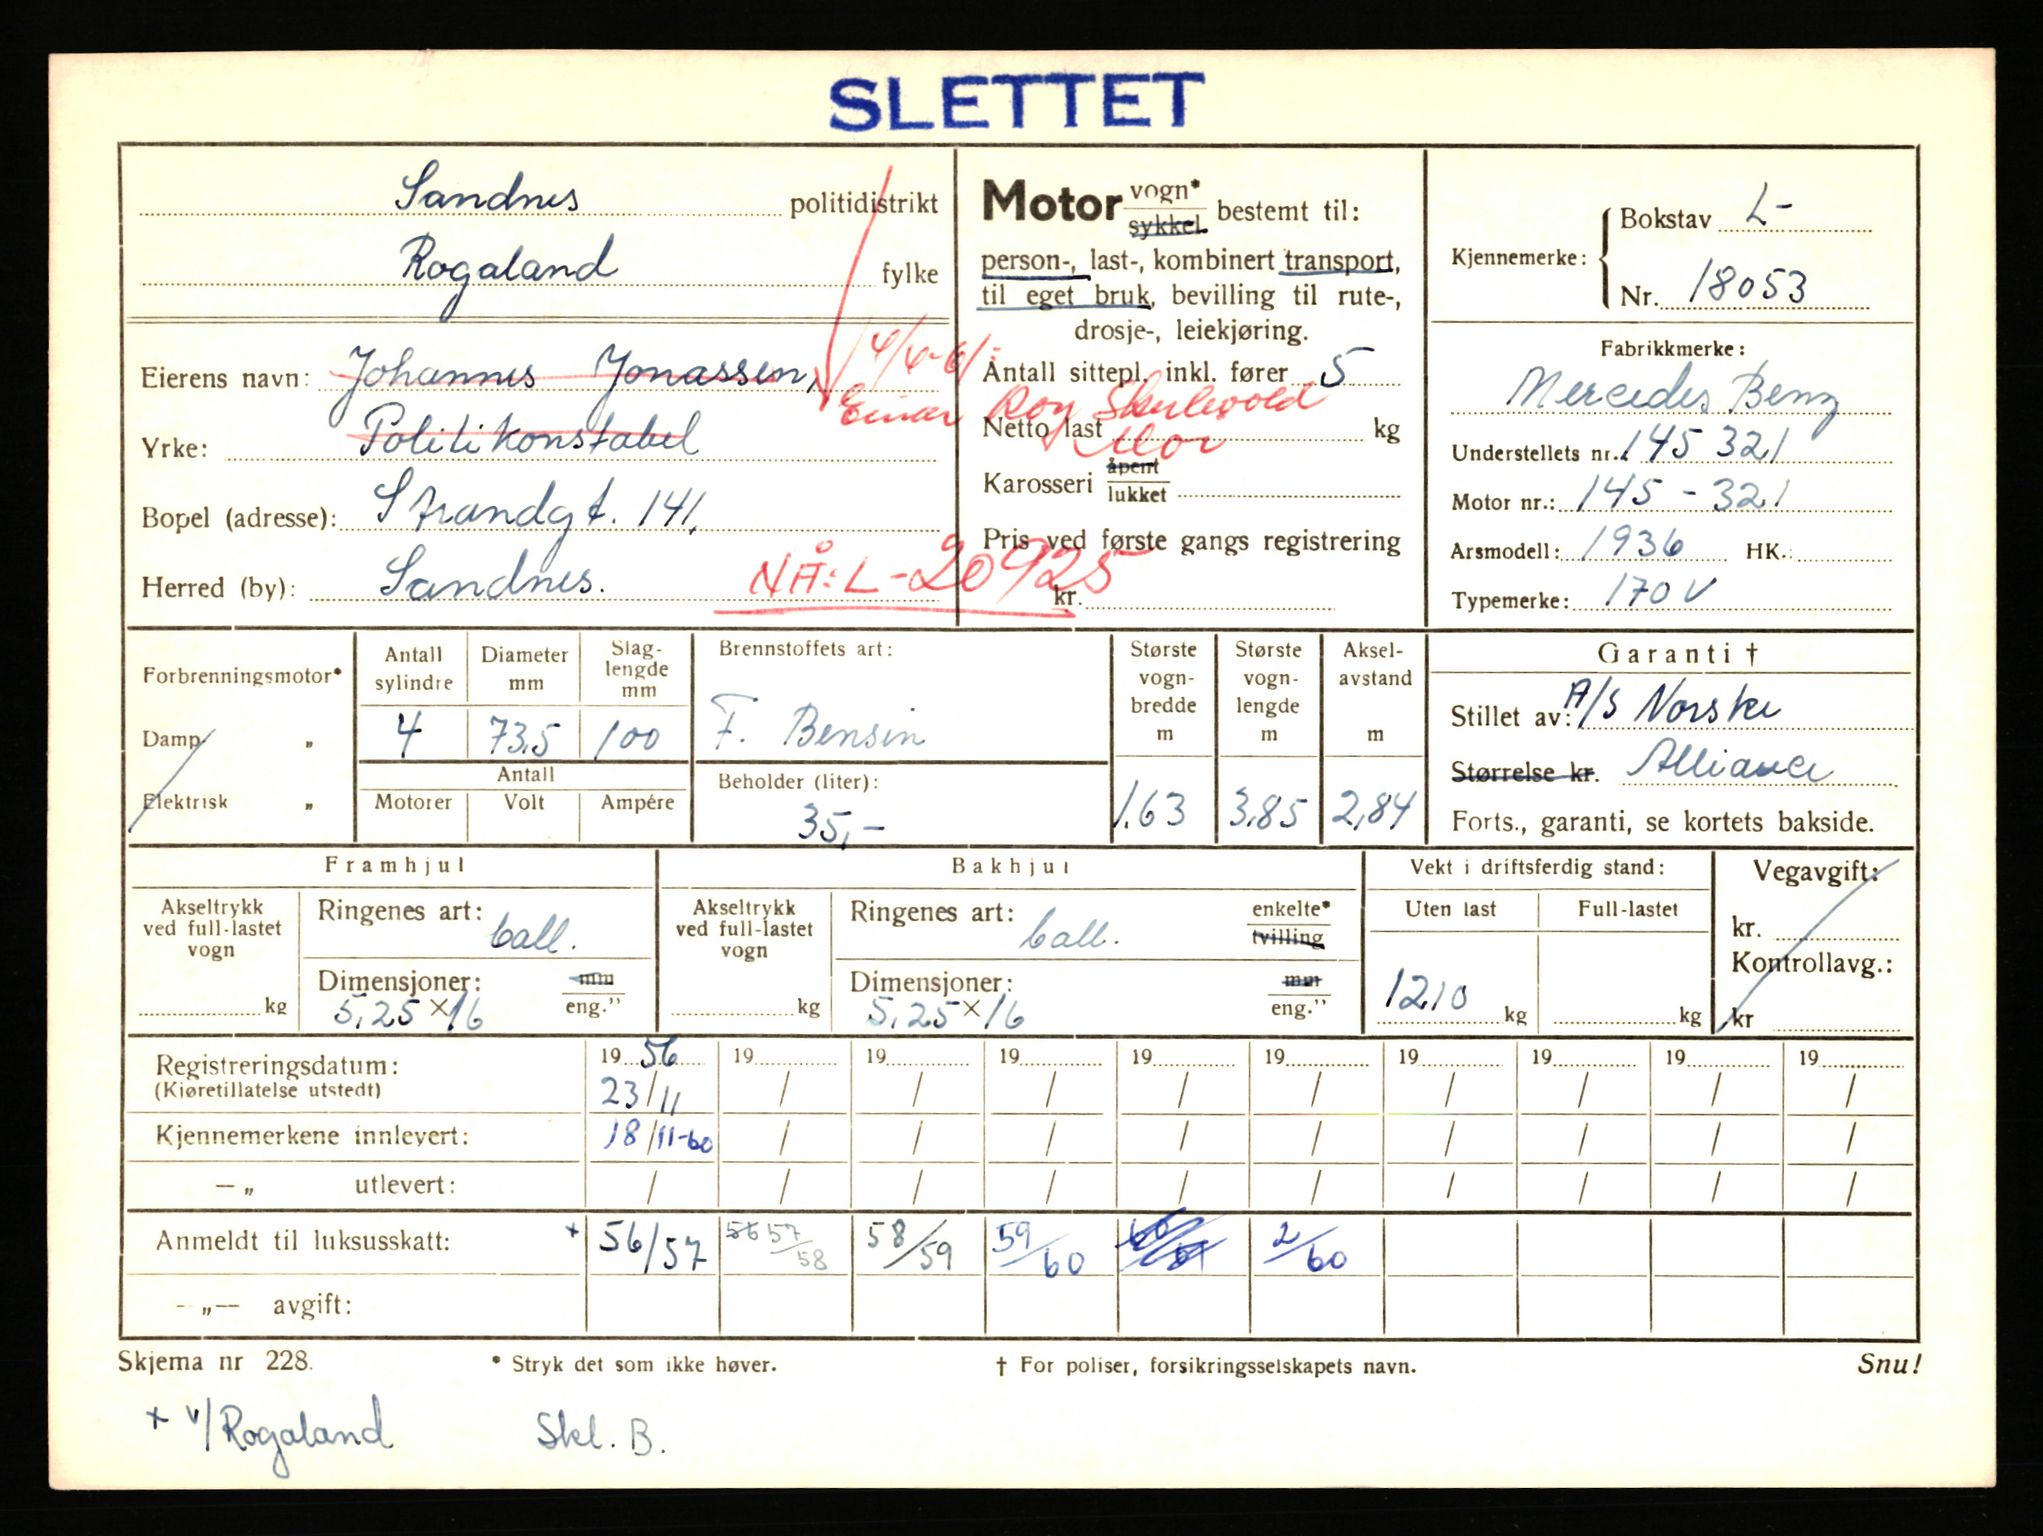 SLETTET
Sandnes politidistrikt
Rogaland fylke
Eierens navn: Johannes Jonassen,
Yrke: Politikonstabel
Bopel (adresse): Strandgt. 141.
Herred (by): Sandnes.
4/4-61:
Einar Roy
NÅ: L-20925
Motor vogn* sykkel bestemt til:
person-, last-, kombinert transport,
til eget bruk, bevilling til rute-,
drosje-, leiekjøring.
Antall sittepl. inkl. fører 5
Netto last kg
Karosseri åpent lukket
Pris ved første gangs registrering
kr.
Kjennemerke: Bokstav L-
Nr. 18053
Fabrikkmerke:
Mercedes Benz
Understellets nr. 145 321
Motor nr.: 145-321
Arsmodell: 1936 HK.:
Typemerke: 170 V
Forbrenningsmotor*
Damp „
Elektrisk „
Antall sylindre
4
Diameter mm
73,5
Slag-lengde mm
100
Antall
Motorer Volt Ampére
Brennstoffets art:
F. Bensin
Beholder (liter):
35,-
Største vogn-bredde m
1.63
Største vogn-lengde m
3,85
Aksel-avstand m
2,84
Garanti †
Stillet av: A/S Norske
Størrelse kr. Alliance
Forts., garanti, se kortets bakside.
Framhjul
Akseltrykk ved full-lastet vogn
kg
Ringenes art: ball.
Dimensjoner: mm eng."
5,25×16
Bakhjul
Akseltrykk ved full-lastet vogn
kg
Ringenes art: ball. enkelte* tvilling
Dimensjoner: mm eng."
5,25×16
Vekt i driftsferdig stand:
Uten last Full-lastet
1210 kg kg
Vegavgift:
kr.
Kontrollavg.:
kr
Registreringsdatum: 19 56 19 19 19 19 19 19 19 19 19
(Kjøretillatelse utstedt) 23/11 / / / / / / / / /
Kjennemerkene innlevert: 18/11-60 / / / / / / / / /
—„ utlevert: / / / / / / / / / /
Anmeldt til luksusskatt: + 56/57 56 57/58 58/59 59/60 60/61 2/60
-„— avgift:
Skjema nr 228. * Stryk det som ikke høver. † For poliser, forsikringsselskapets navn. Snu!
+ v/Rogaland Skl. B.